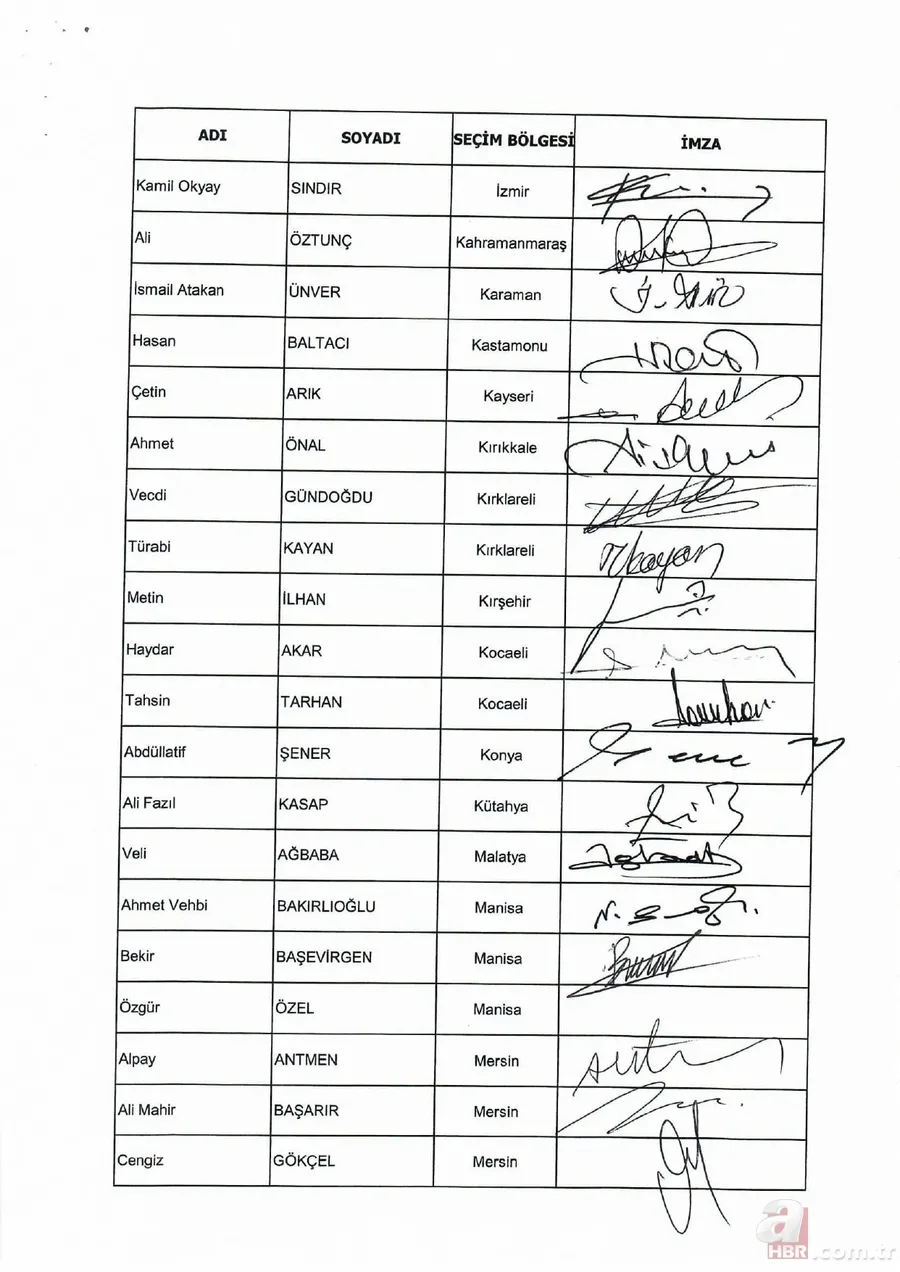 ADI SOYADI SEÇİM BÖLGESİ İMZA
Kamil Okyay SINDIR İzmir
Ali ÖZTUNÇ Kahramanmaraş
İsmail Atakan ÜNVER Karaman
Hasan BALTACI Kastamonu
Çetin ARIK Kayseri
Ahmet ÖNAL Kırıkkale
Vecdi GÜNDOĞDU Kırklareli
Türabi KAYAN Kırklareli
Metin İLHAN Kırşehir
Haydar AKAR Kocaeli
Tahsin TARHAN Kocaeli
Abdüllatif ŞENER Konya
Ali Fazıl KASAP Kütahya
Veli AĞBABA Malatya
Ahmet Vehbi BAKIRLIOĞLU Manisa
Bekir BAŞEVİRGEN Manisa
Özgür ÖZEL Manisa
Alpay ANTMEN Mersin
Ali Mahir BAŞARIR Mersin
Cengiz GÖKÇEL Mersin
a
HBR.com.tr